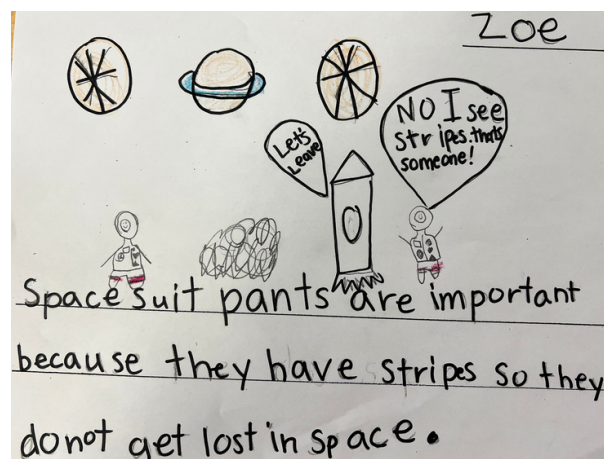 Zoe
Let's
Leave
NO I see
stripes. thats
someone!
Spacesuit pants are important
because they have stripes so they
do not get lost in space.